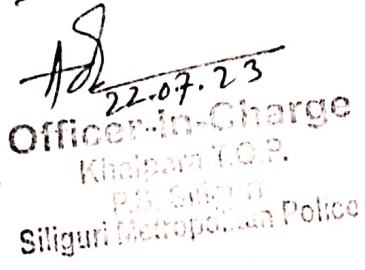 22.07.23
Officer-in-Charge
Khalpara T.O.P.
P.S. Siliguri
Siliguri Metropolitan Police